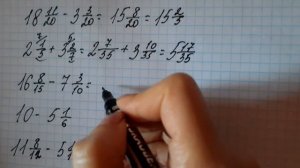 18 11/20 - 3 3/20 = 15 8/20 = 15 2/5
2 1/5 + 3 2/7 = 2 7/35 + 3 10/35 = 5 17/35
16 8/15 - 7 3/10 =
10 - 5 1/6
11 8/12 - 5